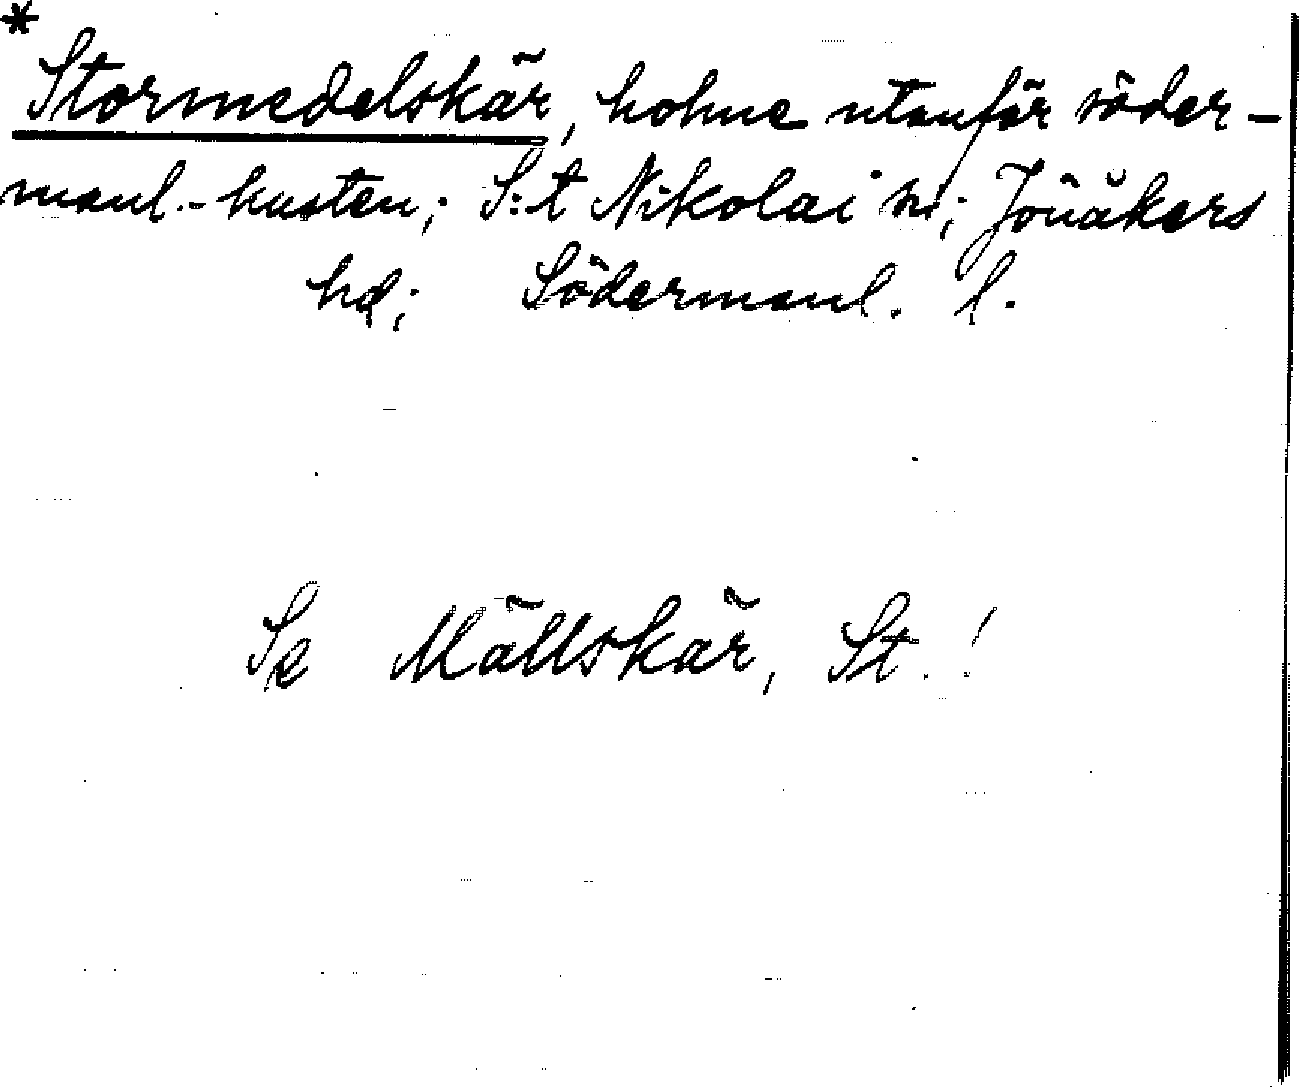 *
Stormedelskär, holme utanför söder-
manl.-kusten; S:t Nikolai sn; Jönåkers
hd; Södermanl. l.
Se Mällskär, St.!